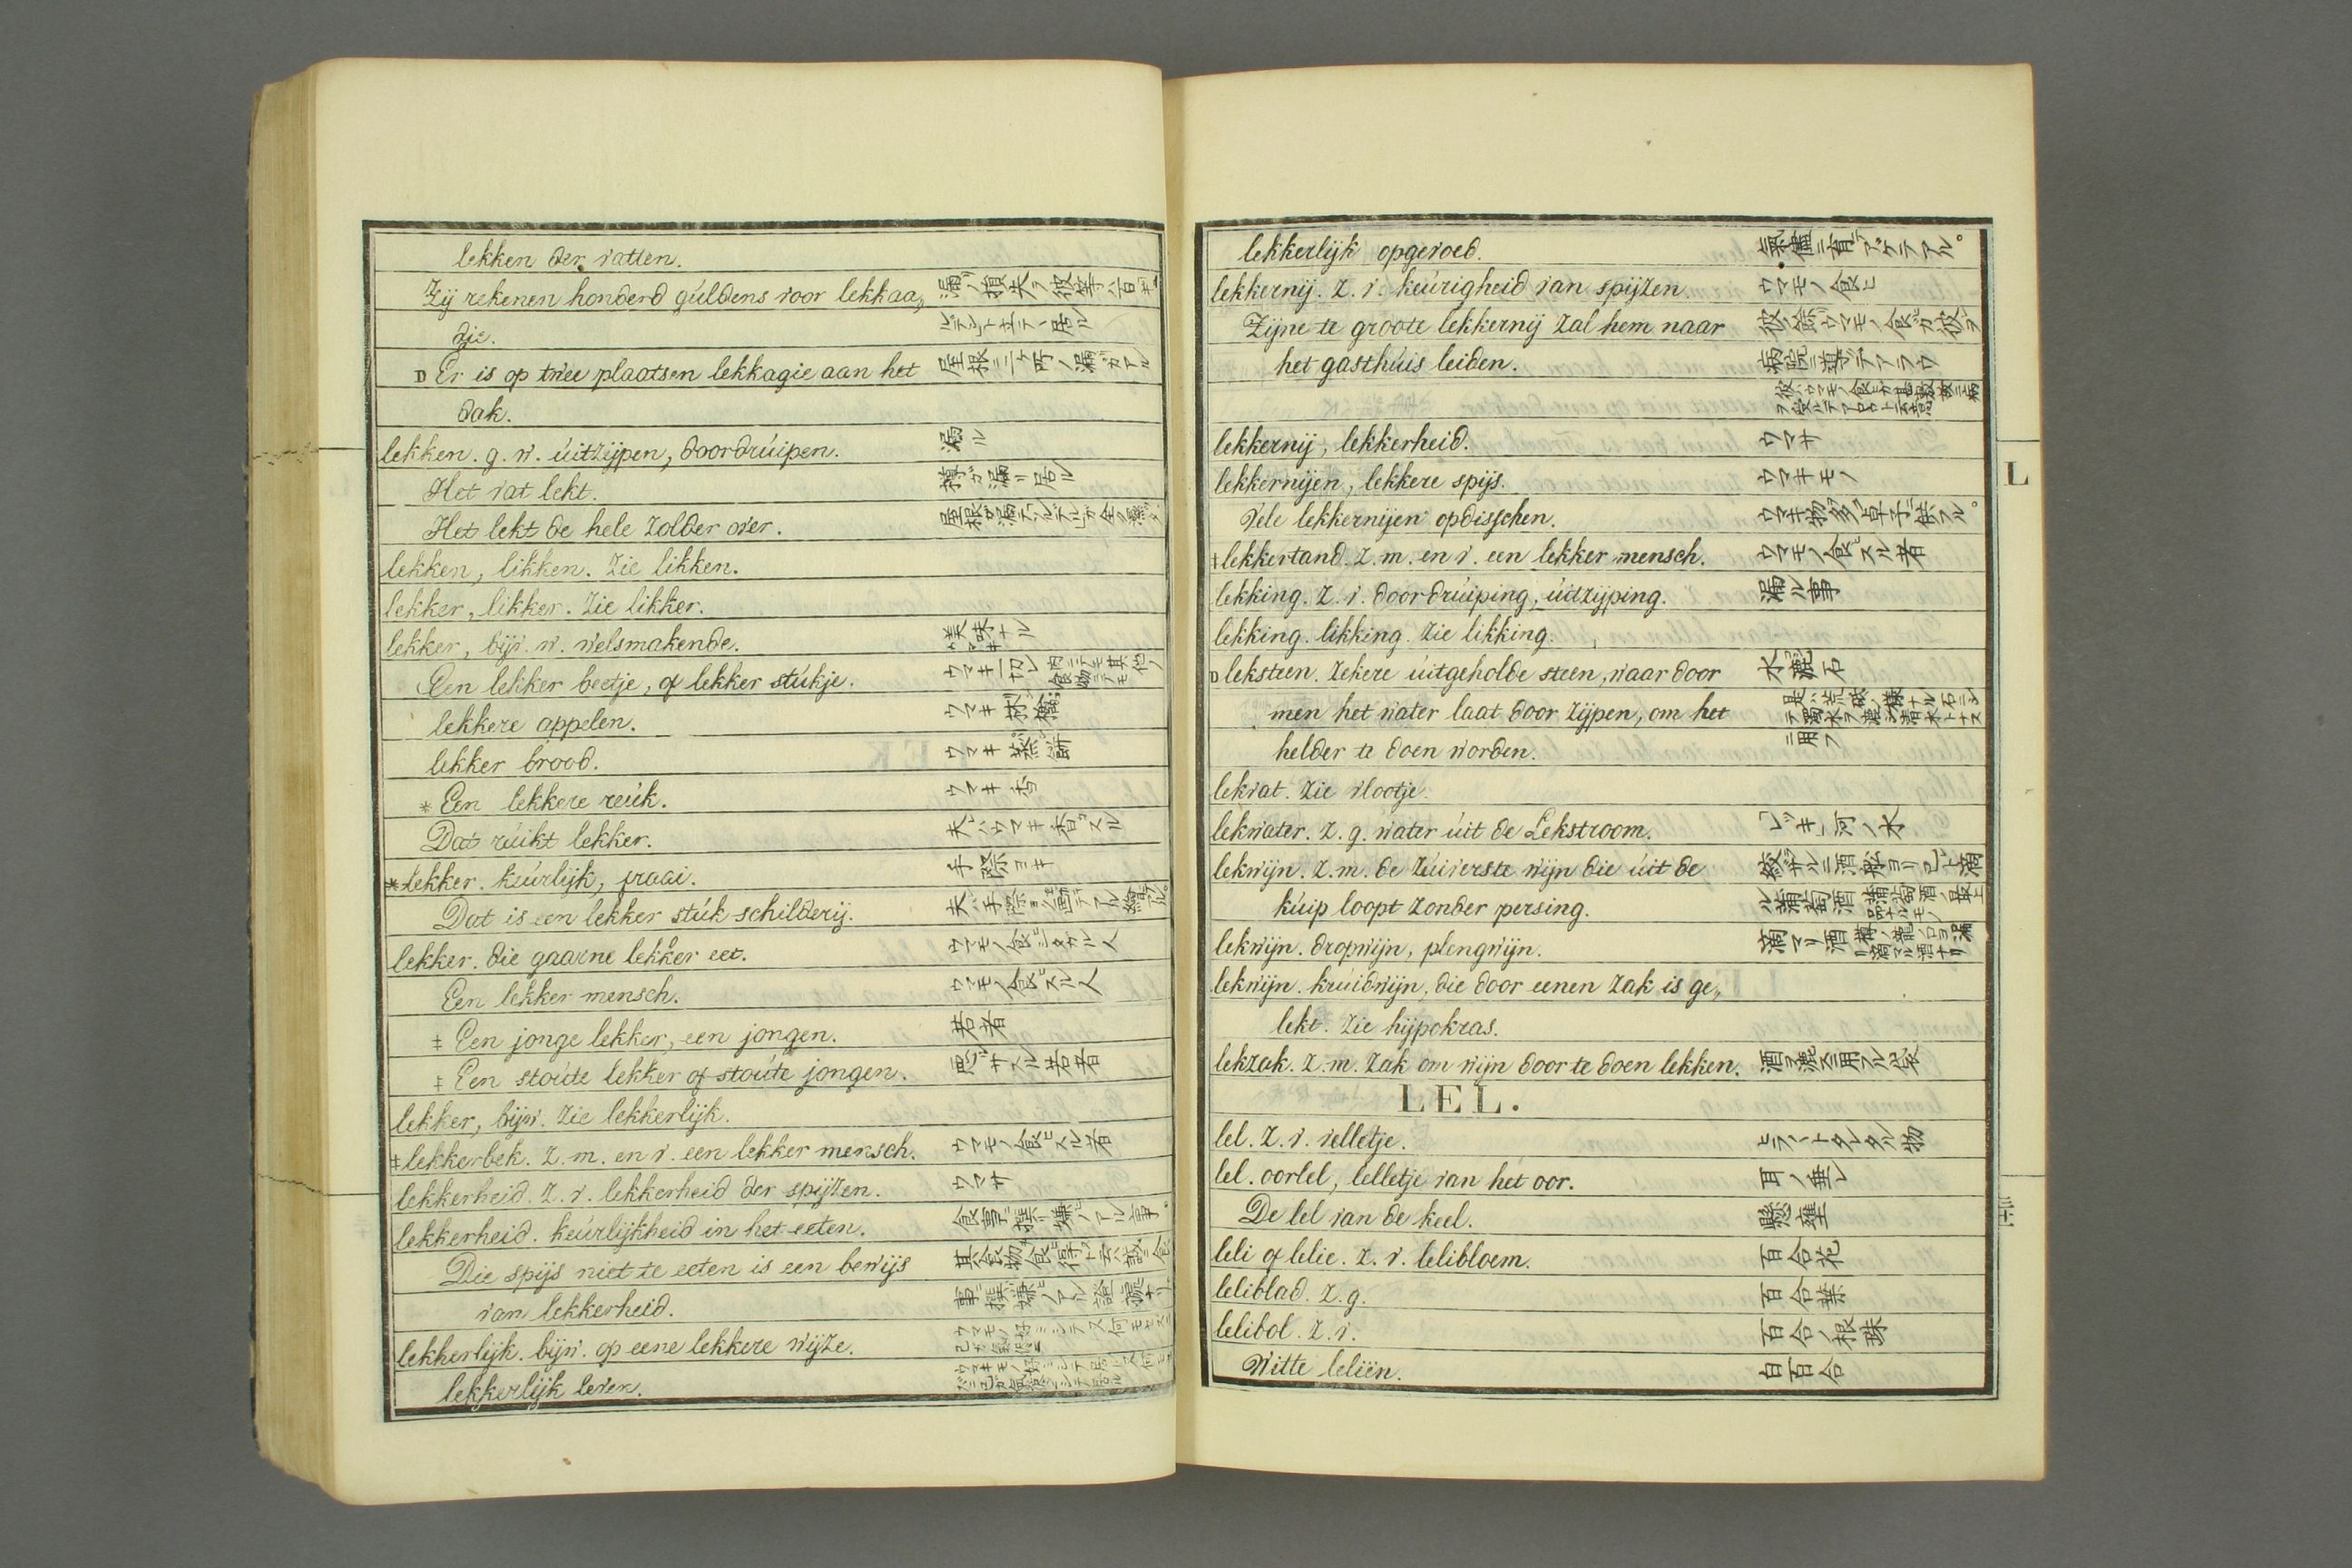 lekken der vatten.
Zij rekenen honderd guldens voor lekkaa„ 漏ノ損失ヲ彼等ハ百ギ
die. ルデント立テヽ居ル
D Er is op twee plaatsen lekkagie aan het 屋根ニ二ヶ所ノ漏ガアル
dak.
lekken. g. w. úitzijpen, doordrúipen. 漏ル
Het vat lekt. 樽ガ漏リ居ル
Het lekt de hele zolder over.
lekken, likken. Zie likken.
lekker, likker. Zie likker.
lekker, bijv. w. welsmakende. 美味ナル
Een lekker beetje, of lekker stúkje. ウマキ一切レ 肉ニテモ其他ノ食物ニテモ
lekkere appelen. ウマキ林檎
lekker brood. ウマキ蒸餅
* Een lekkere reúk. ウマキ香
Dat rúikt lekker. 夫ハウマキ香ガスル
* lekker. keúrlijk, fraai. 手際ヨキ
Dat is een lekker stúk schilderij. 夫ハ手際ヨク画テアル
lekker. die gaarne lekker eet. ウマモノ食ヒシタガル人
Een lekker mensch. ウマモノ食ヒスル人
‡ Een jonge lekker, een jongen. 若者
‡ Een stoúte lekker of stoúte jongen. 悪サスル若者
lekker, bijw. Zie lekkerlijk.
‡ lekkerbek. z. m. en v. een lekker mensch. ウマモノ食ヒスル者
lekkerheid. z. v. lekkerheid der spijzen. ウマサ
lekkerheid. keúrlijkheid in het eeten. 食事ニ撰嫌ヒノアル事。
Die spijs niet te eeten is een bewijs
van lekkerheid. 事ニ撰嫌ヒノアル證據ナリ
lekkerlijk. bijw. op eene lekkere wijze.
lekkerlijk leven.
lekkerlijk opgevoed. 氣儘ニ育アケテアル。
lekkernij. z. v. keúrigheid van spijzen. ウマモノ食ヒ
Zijne te groote lekkernij zal hem naar 彼ノ餘リウマモノ食ガ彼ヲ
het gasthúis leiden. 病院ニ導テアラウ
lekkernij, lekkerheid. ウマサ
lekkernijen, lekkere spijs. ウマキモノ
Vele lekkernijen opdisschen. ウマキ物多ク卓子ニ供フル。
‡ lekkertand. z. m. en v. een lekker mensch. ウマモノ食ヒスル者
lekking. z. v. doordrúiping, úitzijping. 漏ル事
lekking. likking. Zie likking.
D leksteen. zekere úitgeholde steen, waar door 水漉石
men het water laat door zijpen, om het
helder te doen worden. ニ用フ
lekvat. Zie vlootje.
lekwater. z. g. water úit de Lekstroom. 「レッキ」河ノ水
lekwijn. z. m. de zúiverste wijn die úit de
kúip loopt zonder persing. ル蒲萄酒
lekwijn. dropwijn, plengwijn. 滴マリ酒
lekwijn. krúidwijn, die door eenen zak is ge„
lekt. Zie hijpokras.
lekzak. z. m. zak om wijn door te doen lekken. 酒ヲ漉スニ用フル袋
LEL.
lel. z. v. velletje. ヒラヽトタレタル物
lel. oorlel, lelletje van het oor. 耳ノ垂レ
De lel van de keel. 懸壅
leli of lelie. z. v. lelibloem. 百合花
leliblad. z. g. 百合葉
lelibol. z. v. 百合ノ根球
Witte leliën. 白百合
L